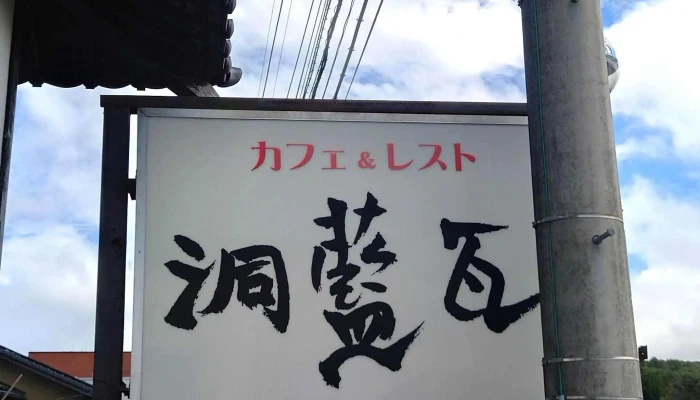 カフェ&レスト
洞藍瓦